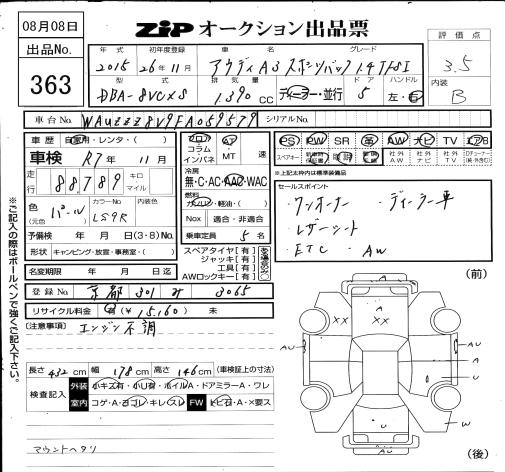 08月08日
ZIP オークション出品票
出品No.
363
評価点
3.5
内装
B
年式 初年度登録 車名 グレード
2015 26年11月 アウディA3 スポーツバック 1.4TFSI
型式 排気量 ドア ハンドル
DBA-8VCXS 1,390cc ディーラー・並行 5 左・右
車台No. WAUZZZ8V9FA059579 シリアルNo.
車歴 自家用・レンタ・( )
車検 R7年 11月
走行 88789 キロ マイル
色(元色) パール カラーNo. LS9R 内装色
予備検 年 月 日(3・8)No.
形状 キャンピング・放宣・事務室・( )
名変期限 年 月 日迄
フロア コラム インパネ AT・MT 速
冷房
無・C・AC・AAC・WAC
燃料
ガソリン・軽油・( )
Nox 適合・非適合
乗車定員 5名
スペアタイヤ【有】
ジャッキ【有】
工具【有】
AWロックキー【有】
PS PW SR 革 AW ナビ TV エアB
※上記太枠内は標準装備品
セールスポイント
・ワンオーナー ・ディーラー車
・レザーシート
・ETC ・AW
登録No. 京都 301 す 3065
リサイクル料金 有(¥15,160) 未
(注意事項) エンジン不調
長さ 432cm 幅 178cm 高さ 146cm (車検証上の寸法)
検査記入 外装 小キズ有・小U有・ホイルA・ドアミラーA・ワレ
室内 コゲ・A・ヨゴレ・キレ(スレ) FW トビ石・A・×要ス
マウントヘタリ
※ご記入の際はボールペンで強くご記入下さい。
(前)
A
XX
XX
AU
AU
A
U
A
U
W
AU
(後)